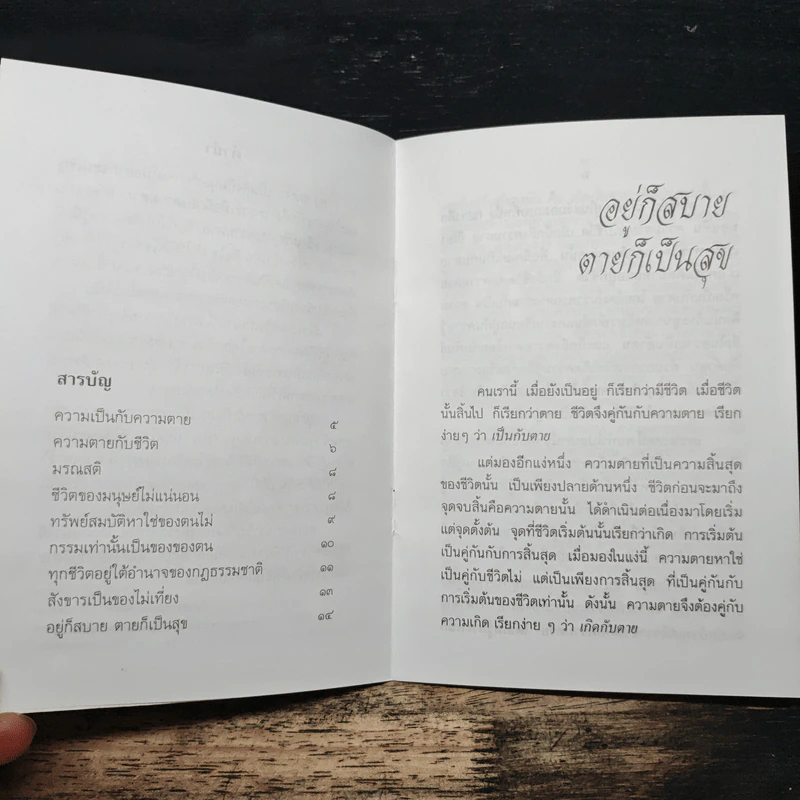 สารบัญ
ความเป็นกับความตาย ๕
ความตายกับชีวิต ๖
มรณสติ ๘
ชีวิตของมนุษย์ไม่แน่นอน ๘
ทรัพย์สมบัติหาใช่ของตนไม่ ๙
กรรมเท่านั้นเป็นของของตน ๑๐
ทุกชีวิตอยู่ใต้อำนาจของกฎธรรมชาติ ๑๑
สังขารเป็นของไม่เที่ยง ๑๓
อยู่ก็สบาย ตายก็เป็นสุข ๑๔
อยู่ก็สบาย
ตายก็เป็นสุข
คนเรานี้ เมื่อยังเป็นอยู่ ก็เรียกว่ามีชีวิต เมื่อชีวิต
นั้นสิ้นไป ก็เรียกว่าตาย ชีวิตจึงคู่กันกับความตาย เรียก
ง่ายๆ ว่า เป็นกับตาย
แต่มองอีกแง่หนึ่ง ความตายที่เป็นความสิ้นสุด
ของชีวิตนั้น เป็นเพียงปลายด้านหนึ่ง ชีวิตก่อนจะมาถึง
จุดจบสิ้นคือความตายนั้น ได้ดำเนินต่อเนื่องมาโดยเริ่ม
แต่จุดตั้งต้น จุดที่ชีวิตเริ่มต้นนั้นเรียกว่าเกิด การเริ่มต้น
เป็นคู่กันกับการสิ้นสุด เมื่อมองในแง่นี้ ความตายหาใช่
เป็นคู่กับชีวิตไม่ แต่เป็นเพียงการสิ้นสุด ที่เป็นคู่กันกับ
การเริ่มต้นของชีวิตเท่านั้น ดังนั้น ความตายจึงต้องคู่กับ
ความเกิด เรียกง่าย ๆ ว่า เกิดกับตาย